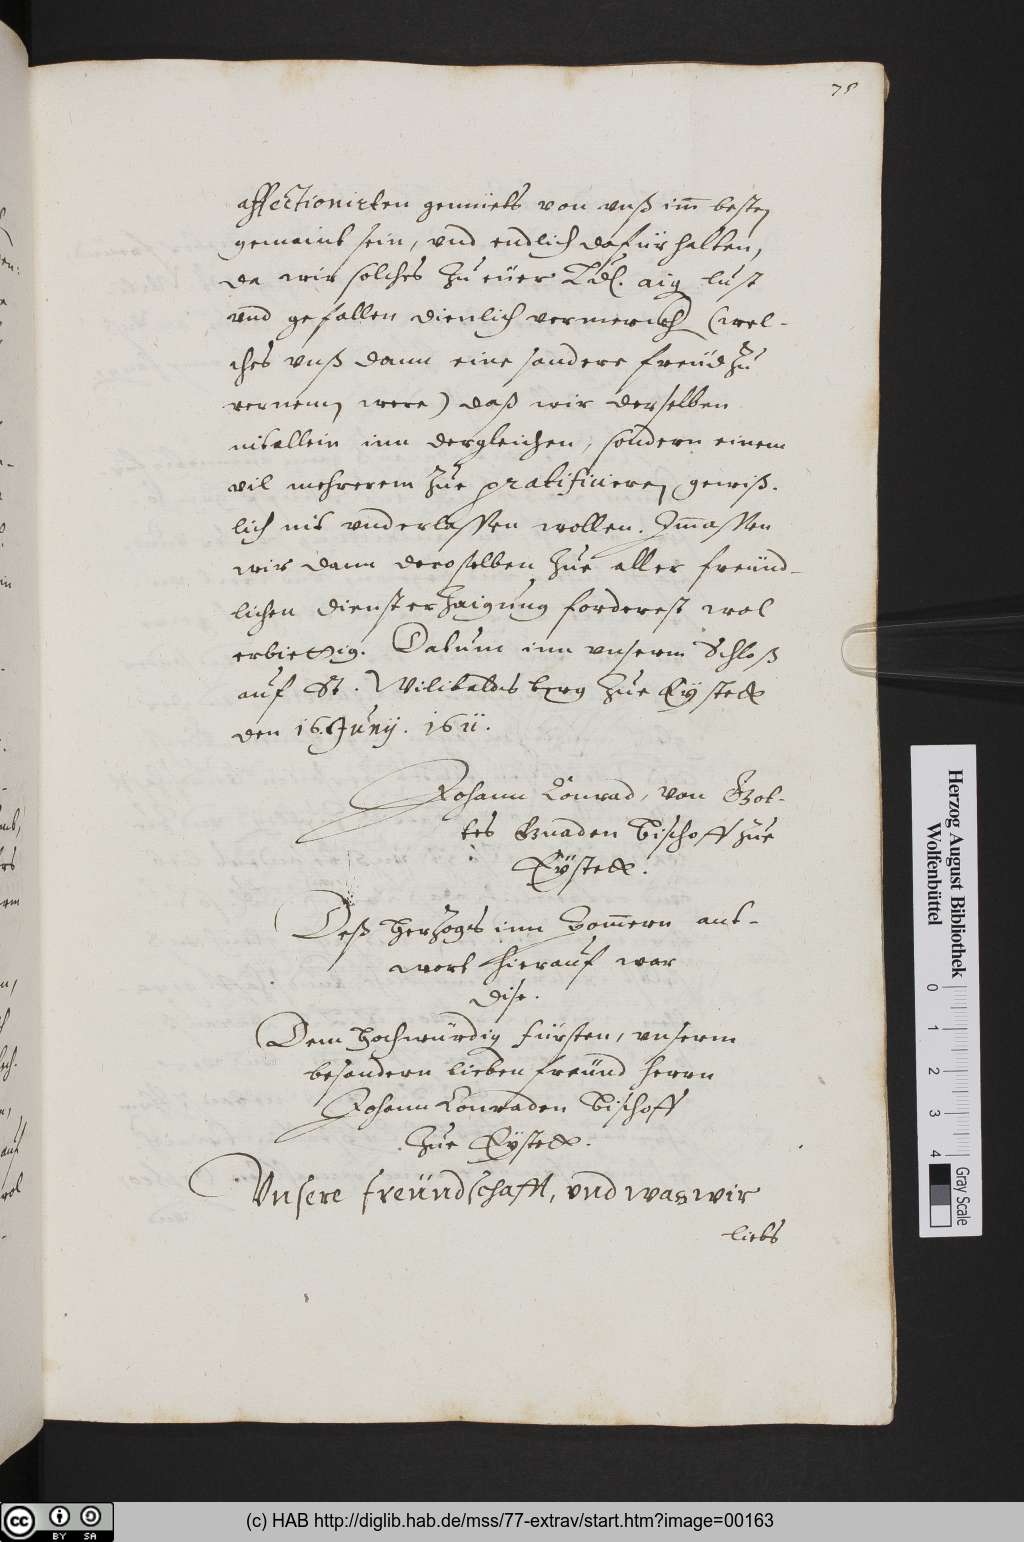 75
affectionirten gemüets von vnß im̅ besten
gemaint sein, vnd endlich dafür halten,
da wir solches zu eüer Ld. aig lust
vnd gefallen dienlich vermerckh (wel-
ches vnß dann eine sondere freüd zu
vernemen were) daß wir derselben
nit allein inn dergleichen, sondern einem
vil mehrerem zue gratificieren gewiß-
lich nit vnderlassen wollen. Im̅assen
wir dann deroselben zue aller freünd-
lichen dienst erzaigung forderest wol
erbiettig. Datum inn vnserm Schloß
auf St. Wilibaldsberg zue Eystett
den 16. Junij. 1611.
Johann Conrad, von Got-
tes Gnaden Bischoff zue
Eÿstett.
Deß Herzogs inn Pom̅ern ant-
wort hierauf war
dise.
Dem Hochwürdig fürsten, vnserm
besondern lieben freünd herrn
Johann Conraden Bischoff
zue Eÿstett.
Vnsere freündschafft, vnd was wir
liebs
Herzog August Bibliothek
Wolfenbüttel
0 1 2 3 4
Gray Scale
(c) HAB http://diglib.hab.de/mss/77-extrav/start.htm?image=00163
cc BY SA